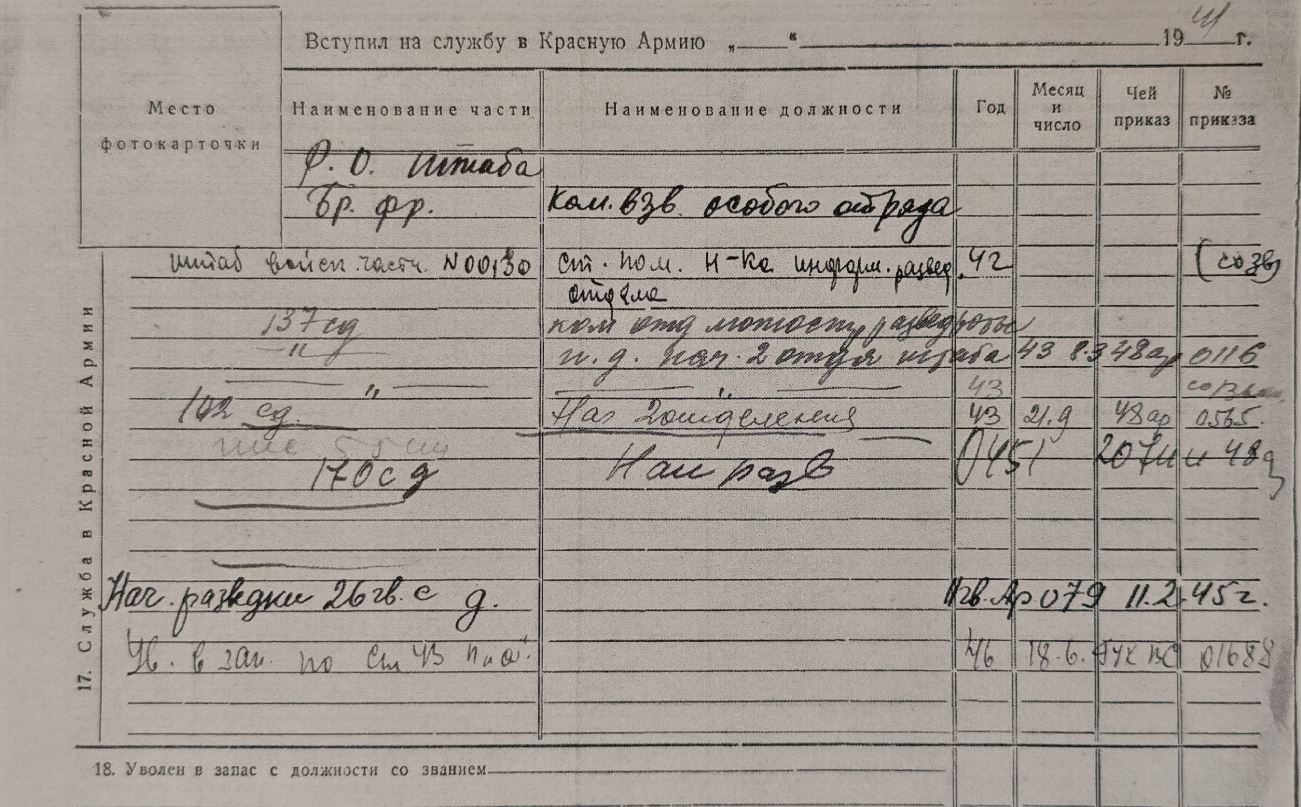 Вступил на службу в Красную Армию „ “ 1941 г.
Место фотокарточки
Наименование части Наименование должности Год Месяц и число Чей приказ № приказа
Р. О. штаба
Бр. фр. Ком. взв. особого отряда
штаб войск. части N00130 ст. пом. н-ка информ. развед. 42 (созв)
отдела
137 сд ком отд мотостр разведроты
— " — и. д. нач. 2 отд-я штаба 43 8.3 48ар 0116
— " — — " — 43
102 сд. Нач 2 отделения 43 21.9 48ар 0565
170 сд Нач разв 0451 48а
Нач. разведки 26 гв. с д. 11гв. Ар 079 11.2.45 г.
Ув. в зап. по ст 43 п. „а“. 46 18.6. ГУК ВС 01688
17. Служба в Красной Армии
18. Уволен в запас с должности со званием